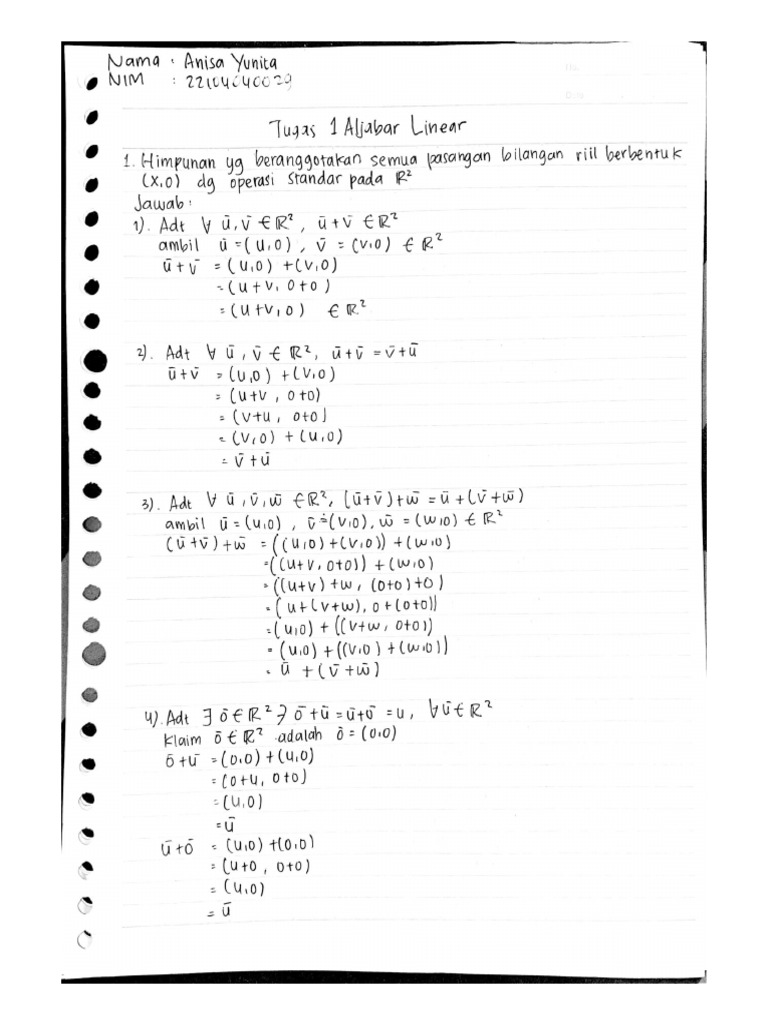 Nama : Anisa Yunita
NIM : 22104040029
Tugas 1 Aljabar Linear
1. Himpunan yg beranggotakan semua pasangan bilangan riil berbentuk
(x,0) dg operasi standar pada ℝ²
Jawab:
1). Adt ∀ ū,v̄ ∈ ℝ², ū+v̄ ∈ ℝ²
ambil ū = (u,0), v̄ = (v,0) ∈ ℝ²
ū+v̄ = (u,0) + (v,0)
= (u+v, 0+0)
= (u+v,0) ∈ ℝ²
2). Adt ∀ ū, v̄ ∈ ℝ², ū+v̄ = v̄+ū
ū+v̄ = (u,0) + (v,0)
= (u+v, 0+0)
= (v+u, 0+0)
= (v,0) + (u,0)
= v̄ + ū
3). Adt ∀ ū,v̄,w̄ ∈ ℝ², (ū+v̄)+w̄ = ū+(v̄+w̄)
ambil ū = (u,0), v̄ = (v,0), w̄ = (w,0) ∈ ℝ²
(ū+v̄)+w̄ = ((u,0)+(v,0)) + (w,0)
= ((u+v, 0+0)) + (w,0)
= ((u+v)+w, (0+0)+0)
= (u+(v+w), 0+(0+0))
= (u,0) + ((v+w, 0+0))
= (u,0) + ((v,0) + (w,0))
= ū + (v̄+w̄)
4). Adt ∃ ō ∈ ℝ² ∋ ō+ū = ū+ō = u, ∀ū ∈ ℝ²
Klaim ō ∈ ℝ² adalah ō = (0,0)
ō+ū = (0,0) + (u,0)
= (0+u, 0+0)
= (u,0)
= ū
ū+ō = (u,0) + (0,0)
= (u+0, 0+0)
= (u,0)
= ū